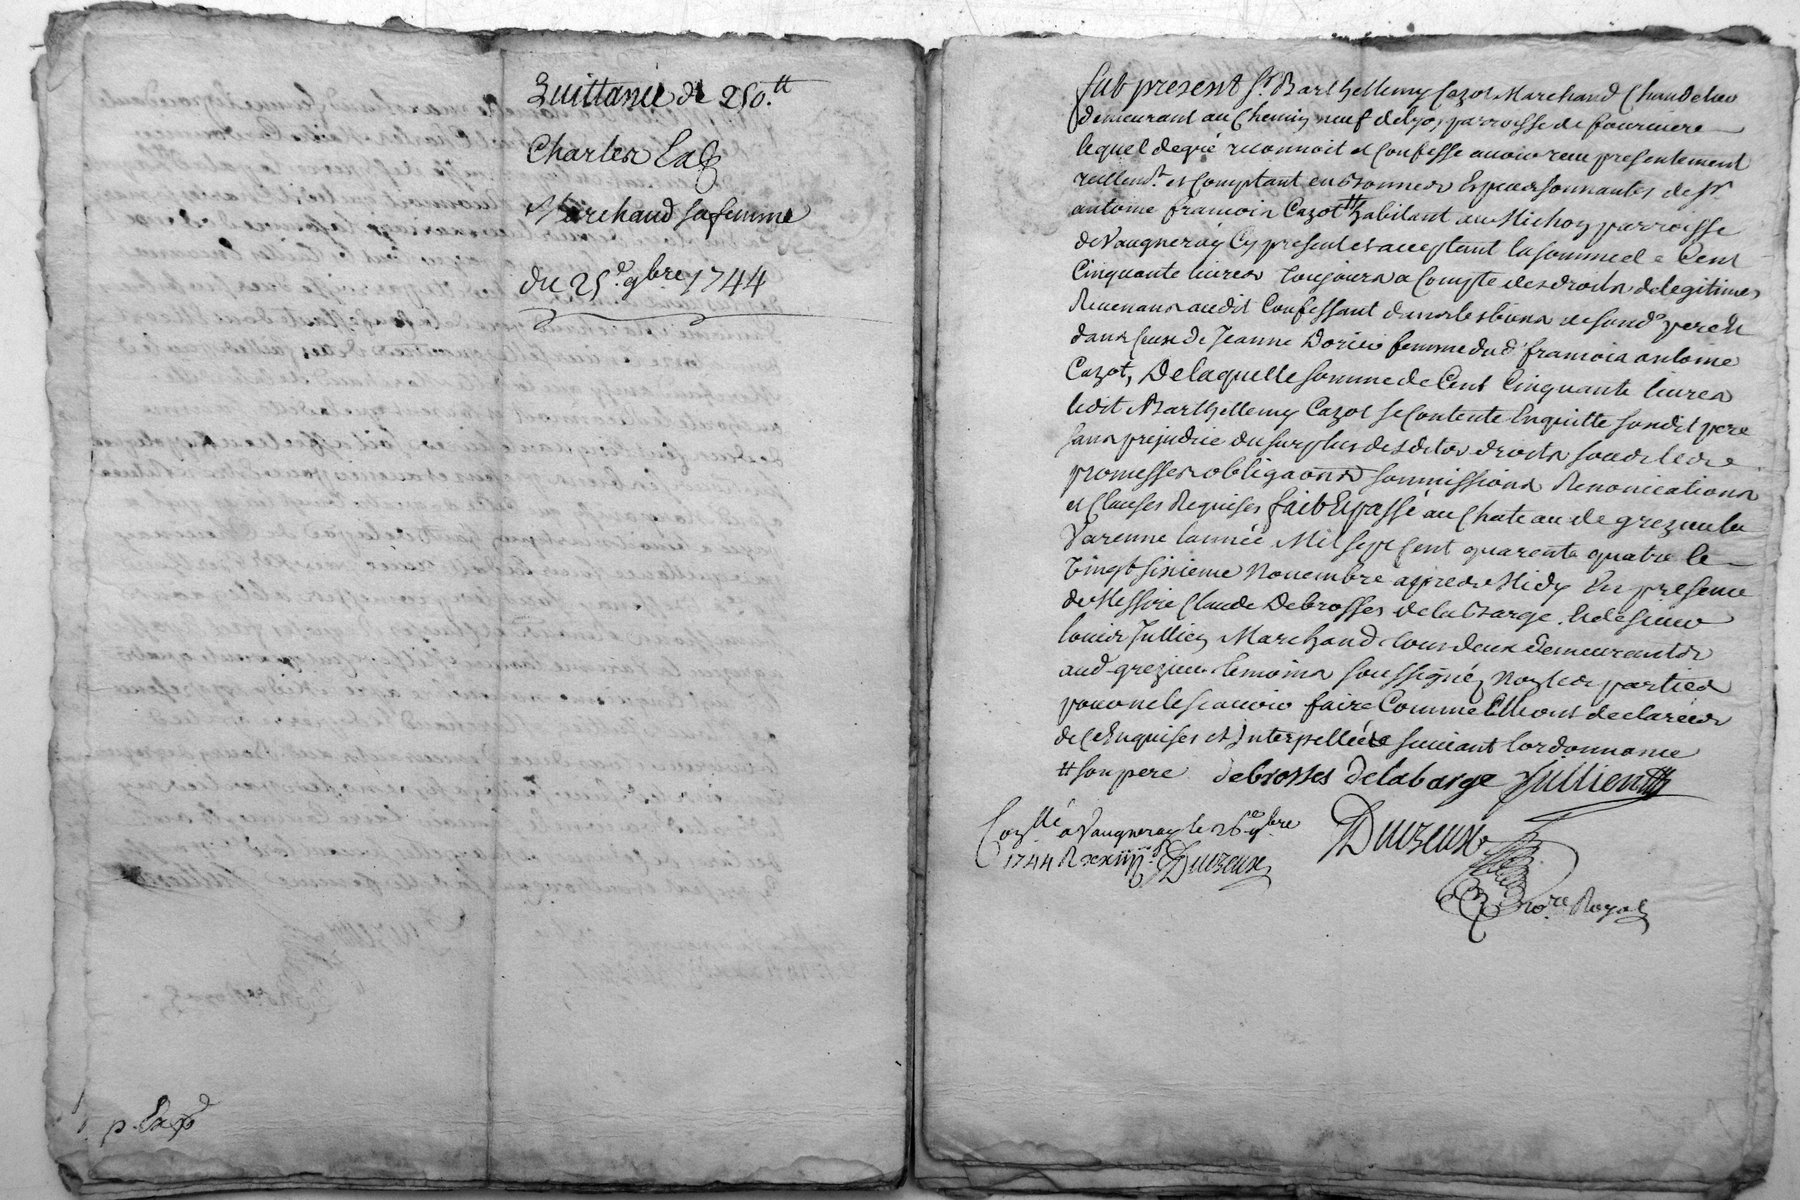 Quittance de 250.tt
Charles
Marchand sa femme
du 25.e 9bre 1744
p. Exp.d
fut present Sr. Barthellemy Cazot Marchand Chandelier
demeurant au Chemin neuf de lyon parroisse de fourviere
lequel de gré reconnoit et Confesse avoir receu presentement
reellemt. et Comptant en bonnes Especes sonnantes de Sr.
antoine francois Cazot # habitant au Michon parroisse
de Vaugneray Cy present et acceptant la somme de Cent
Cinquante livres toujours a Compte des droits de legitimes
Revenans audit Confessant dans les biens de sond. pere et
dans Ceux de Jeanne Dorier femme dud. francois antoine
Cazot, De laquelle somme de Cent Cinquante livres
ledit Barthellemy Cazot se Contente En quitte sondit pere
sans prejudice du surplus desdits droits sous
promesses obligaons soumissions Renonciations
et Clauses Requises fait Et passé au Chateau de grezieu la
Varenne l'année Mil sept Cent quarente quatre le
Vingt sixieme Novembre apres Midy En presence
de Messire Claude Debrosses de la barge. Et de sieur
louis Jullien Marchand tous deux demeurants
aud. grezieu temoins soussignéz Non les parties
pour ne le scavoir faire Comme Elles ont declarées
de Ce Enquises et Interpellées suivant lordonnance
# son pere debrosses Delabarge Jullien
Conllé a Vaugneray le 26.e 9bre
1744 R xxiiij s. Duvreux
Duvreux
nore. Royal